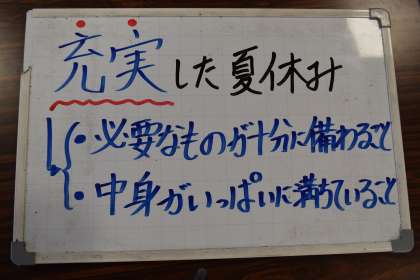 充実した夏休み
・必要なものが十分に備わること
・中身がいっぱいに満ちていること